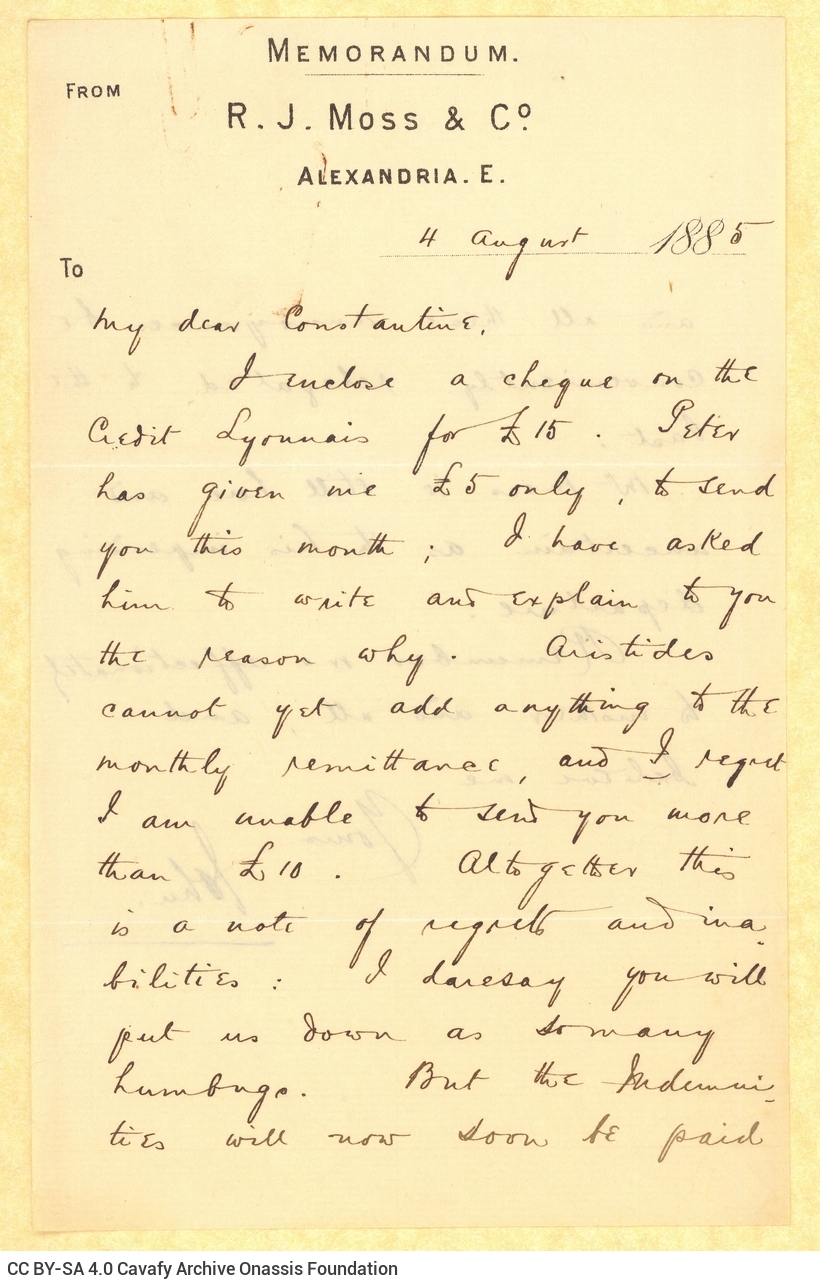 MEMORANDUM.
FROM
R. J. Moss & Cº
ALEXANDRIA. E.
4 August 1885
To
My dear Constantine,
I enclose a cheque on the
Credit Lyonnais for £15. Peter
has given me £5 only, to send
you this month; I have asked
him to write and explain to you
the reason why. Aristides
cannot yet add anything to the
monthly remittance, and I regret
I am unable to send you more
than £10. Altogether this
is a note of regrets and ina-
bilities: I daresay you will
put us down as so many
humbugs. But the Indemni-
ties will now soon be paid
CC BY-SA 4.0 Cavafy Archive Onassis Foundation